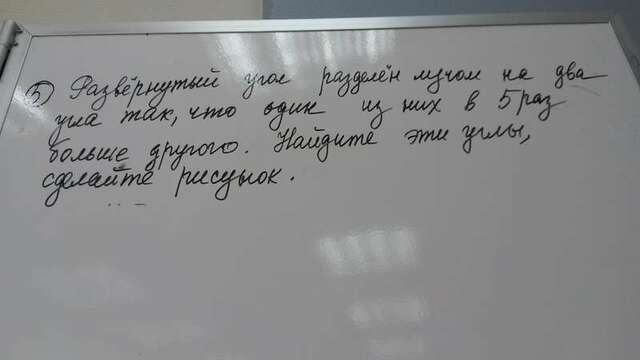 5) Развёрнутый угол разделён лучом на два
угла так, что один из них в 5 раз
больше другого. Найдите эти углы,
сделайте рисунок.